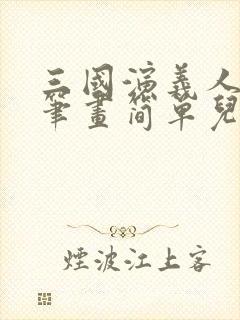 三國演義人
筆畫簡單兒
煙波江上客